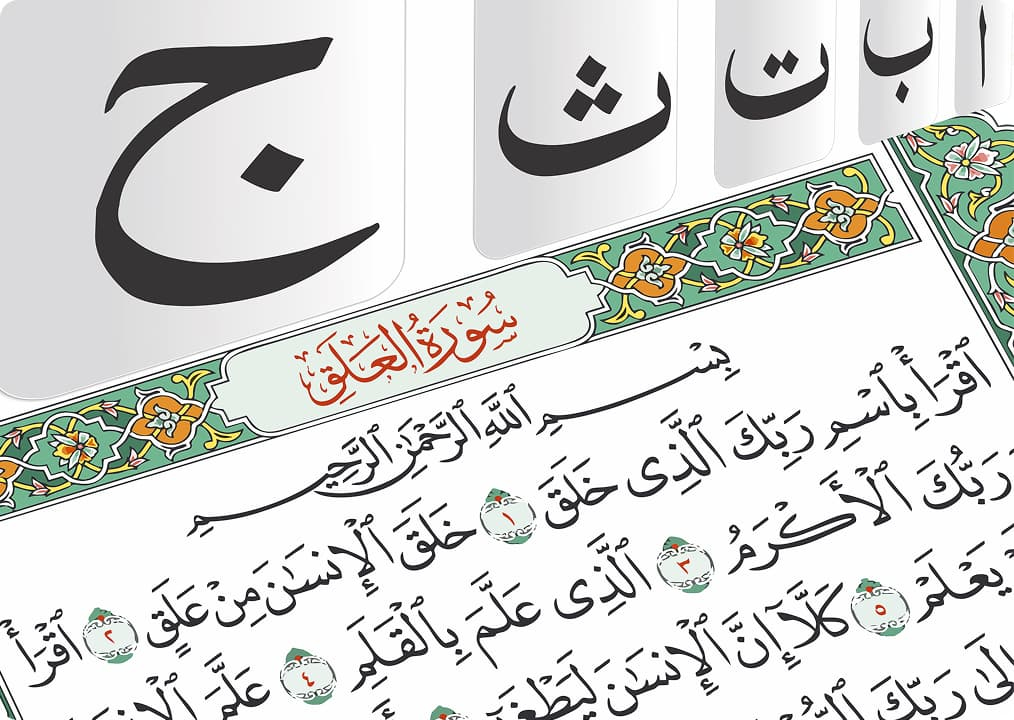 ا ب ت ث ج
سُورَةُ العَلَقِ
بِسْمِ ٱللَّهِ ٱلرَّحْمَٰنِ ٱلرَّحِيمِ
ٱقْرَأْ بِٱسْمِ رَبِّكَ ٱلَّذِى خَلَقَ ١ خَلَقَ ٱلْإِنسَٰنَ مِنْ عَلَقٍ ٢ ٱقْرَأْ
وَرَبُّكَ ٱلْأَكْرَمُ ٣ ٱلَّذِى عَلَّمَ بِٱلْقَلَمِ ٤ عَلَّمَ ٱلْإِنسَٰنَ
يَعْلَمْ ٥ كَلَّآ إِنَّ ٱلْإِنسَٰنَ
إِلَىٰ رَبِّكَ